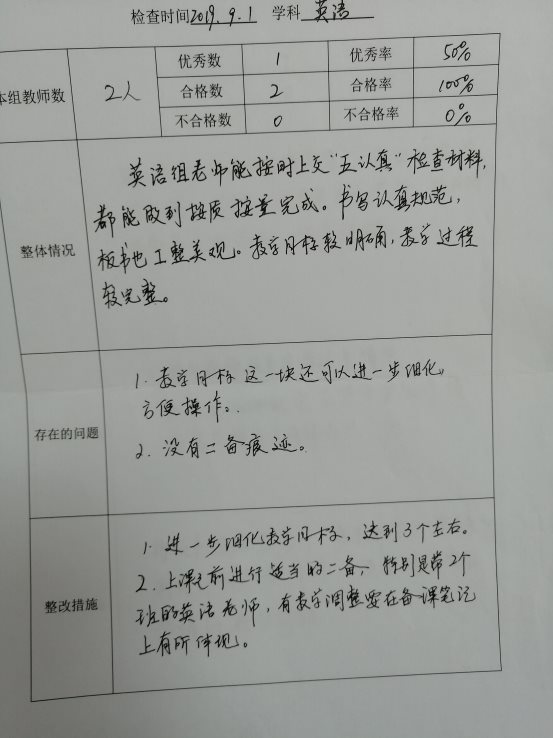 检查时间2019.9.1 学科 英语
本组教师数 2人 优秀数 1 优秀率 50%
合格数 2 合格率 100%
不合格数 0 不合格率 0%
整体情况
英语组老师能按时上交“五认真”检查材料,
都能做到按质按量完成。书写认真规范,
板书也工整美观。教学目标较明确,教学过程
较完整。
存在的问题
1. 教学目标这一块还可以进一步细化。
方便操作。
2. 没有二备痕迹。
整改措施
1. 进一步细化教学目标,达到3个左右。
2. 上课之前进行适当的二备,特别是带2个
班的英语老师,有教学调整要在备课笔记
上有所体现。